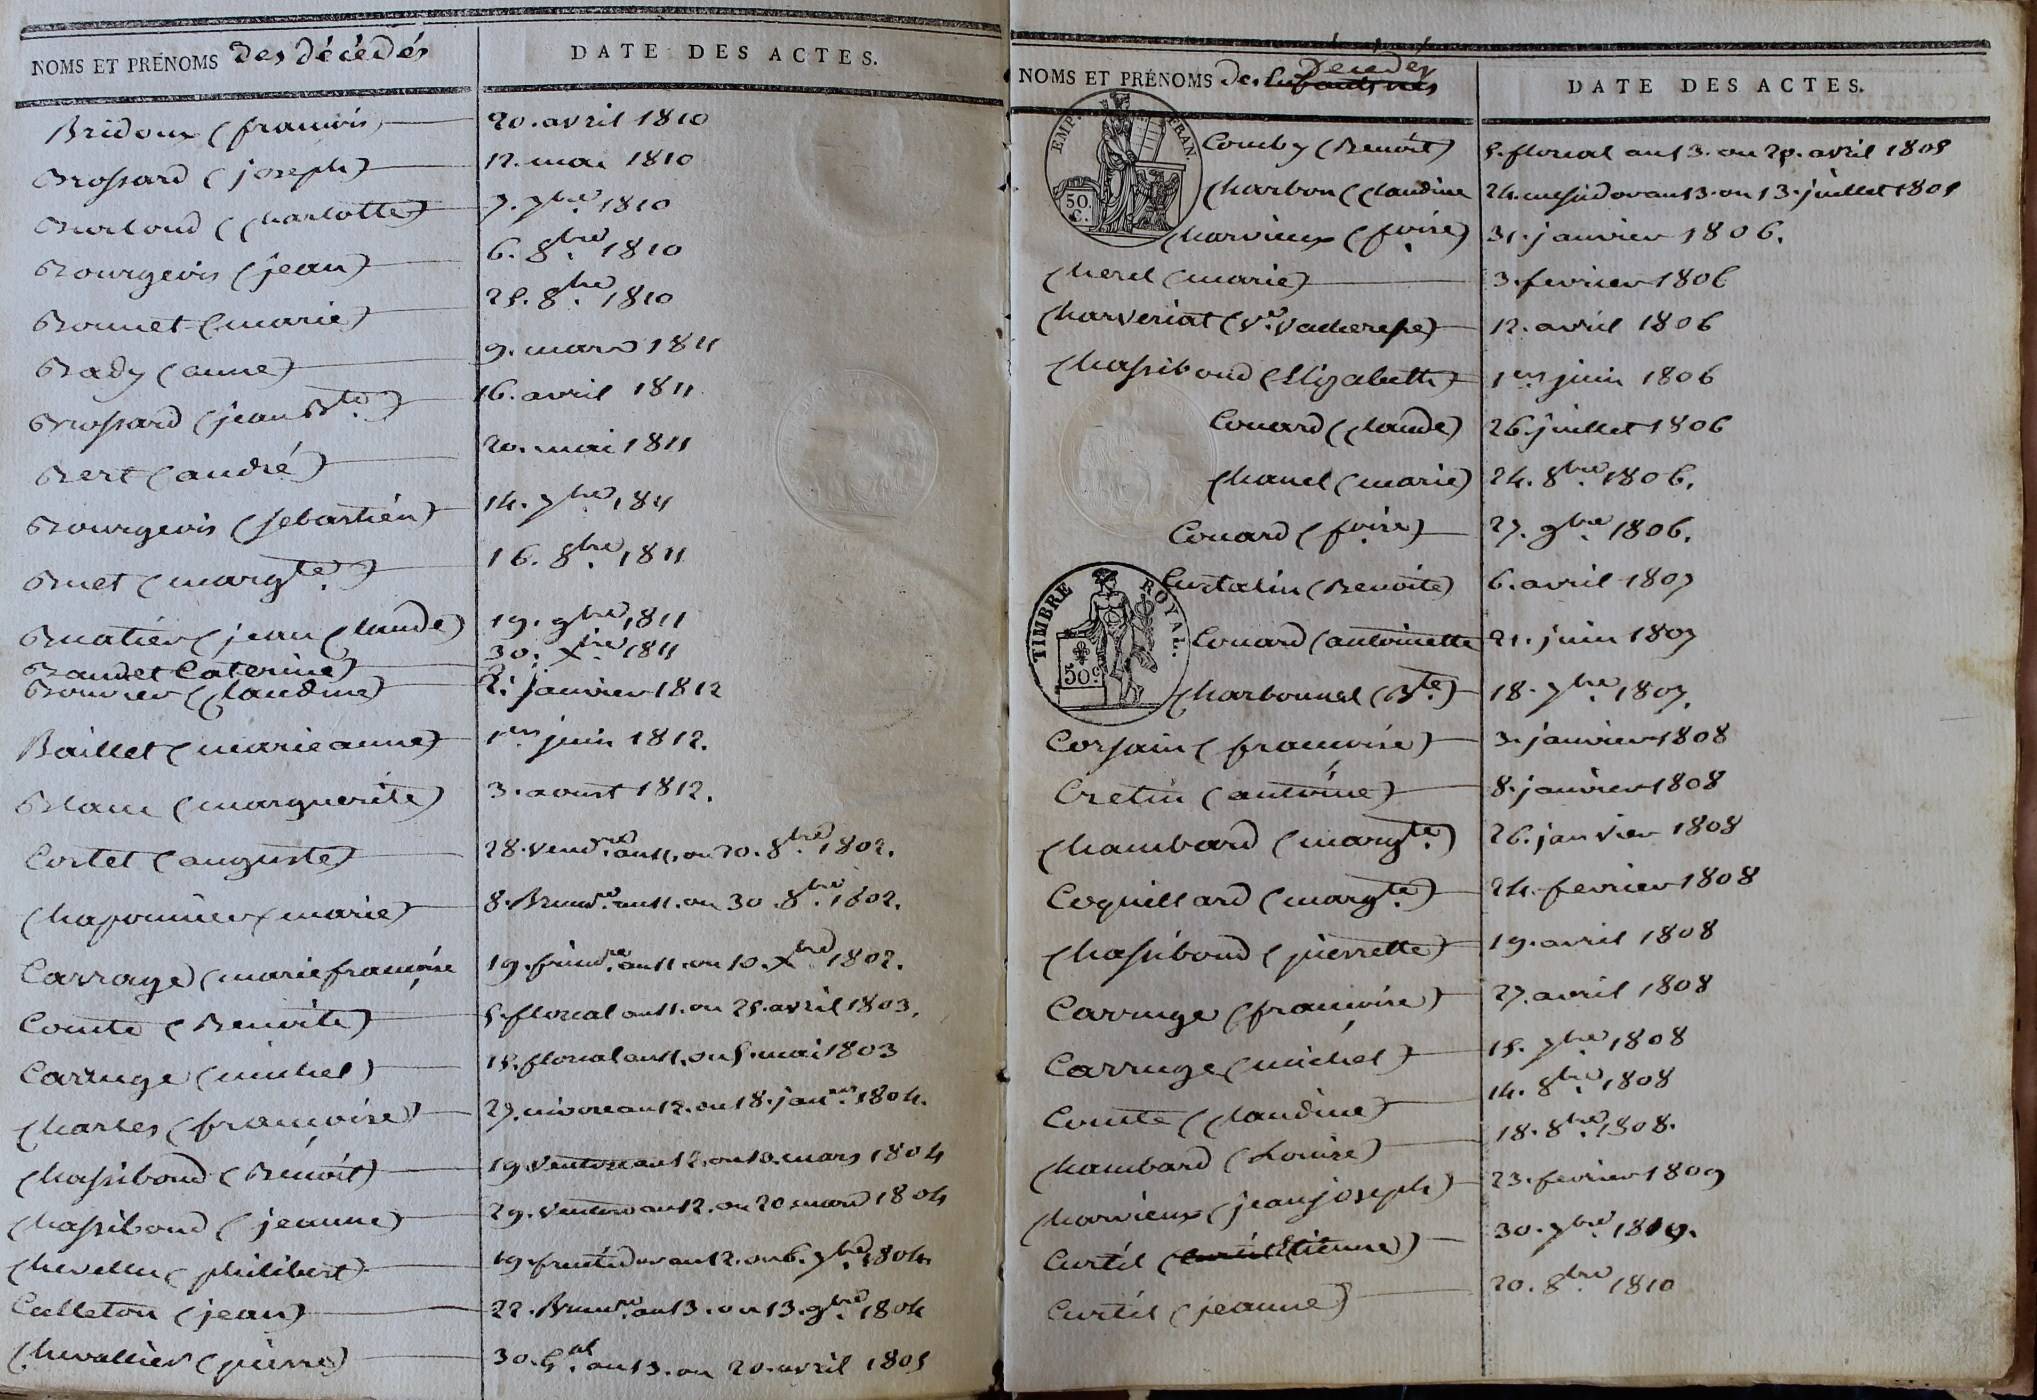 NOMS ET PRÉNOMS des décédés
DATE DES ACTES.
Bridoux (francois) 20. avril 1810
Brossard (joseph) 12. mai 1810
Burloud (Charlotte) 7. 7bre. 1810
Bourgeois (jean) 6. 8bre. 1810
Bonnet (marie) 25. 8bre. 1810
Bady (anne) 9. mars 1811
Brossard (jean Bte.) 16. avril 1811
Bert (andré) 20. mai 1811
Bourgeois (sebastien) 14. 7bre 1811
Bruet (margte.) 16. 8bre. 1811
Bruatier (jean Claude) 19. 9bre. 1811
Baudet Caterine) 30. Xbre. 1811
Bouvier (Claudine) 2. janvier 1812
Baillet (marie anne) 1er juin 1812.
Blanc (marguerite) 3. aoust 1812.
Cortet (auguste) 28. vendre. an 11. ou 20. 8bre. 1802.
Chaponnier (marie) 8. Brumre. an 11. ou 30. 8bre. 1802.
Carrage (marie françoise 19. frimre. an 11. ou 10. Xbre 1802.
Comte (Benoite) 5. floreal an 11. ou 25. avril 1803.
Carruge (michel) 15. floreal an 11. ou 5. mai 1803
Charles (francoise) 27. nivose an 12. ou 18. janer. 1804.
Chassiboud (Benoît) 19. ventose an 12. ou 10. mars 1804
Chassiboud (jeanne) 29. ventose an 12. ou 20 mars 1804
Chevellu (philibert) 19. fructidor an 12. ou 6. 7bre. 1804
Calleton (jean) 22. Brumre. an 13. ou 13. 9bre. 1804
Chevallier (pierre) 30. Gal. an 13. ou 20. avril 1805
NOMS ET PRÉNOMS des décédés
DATE DES ACTES.
EMP. FRAN.
50. C.
Comby (Benoît) 5. floreal an 13. ou 25. avril 1805
Charbon (Claudine 24. messidor an 13. ou 13. juillet 1805
Charvieux (foise) 31. janvier 1806.
Cherel (marie) 3. fevrier 1806
Charveriat (ve. vacheresse) 12. avril 1806
Chassiboud (Elizabeth) 1er juin 1806
Couard (Claude) 26. juillet 1806
Chanel (marie) 24. 8bre. 1806.
Couard (foise) 27. 9bre. 1806.
Curtalin (Benoite) 6. avril 1807
TIMBRE ROYAL.
50 c.
Couard (antoinette 21. juin 1807
Charbonnel (Bte.) 18. 7bre. 1807.
Corsain (francoise) 3. janvier 1808
Cretin (antoine) 8. janvier 1808
Chambard (margte.) 26. janvier 1808
Coquillard (margte.) 24. fevrier 1808
Chassiboud (pierrette) 19. avril 1808
Carruge (francoise) 27. avril 1808
Carruge (michel) 15. 7bre. 1808
Comte (Claudine) 14. 8bre. 1808
Chambard (Louise) 18. 8bre. 1808.
Charvieux (jean joseph) 23. fevrier 1809
Curtil (Etienne) 30. 7bre. 1819.
Curtil (jeanne) 20. 8bre. 1810